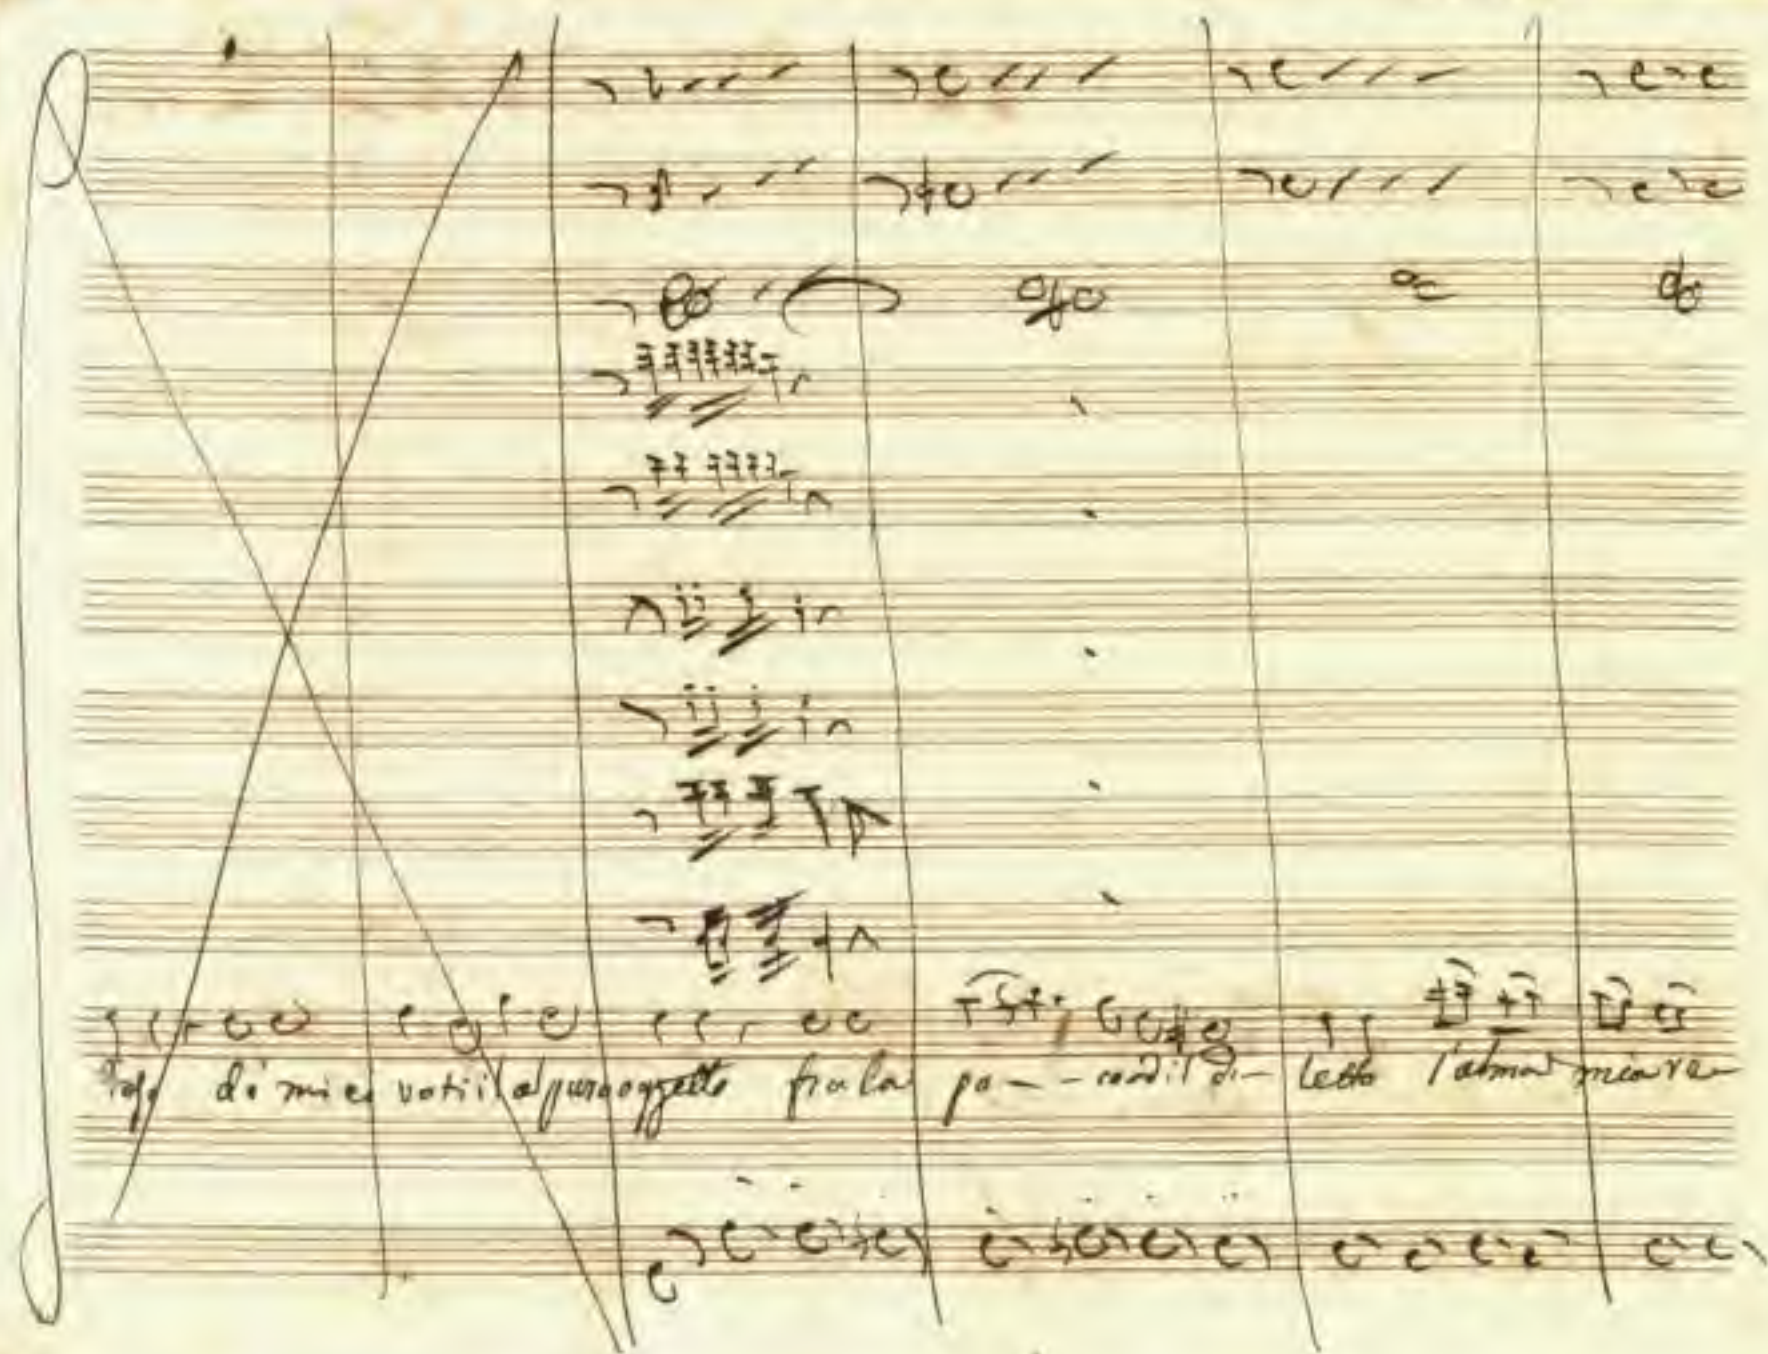 di miei voti il purooggetto fra la pa - - ced il di - letto l'alma mia ve